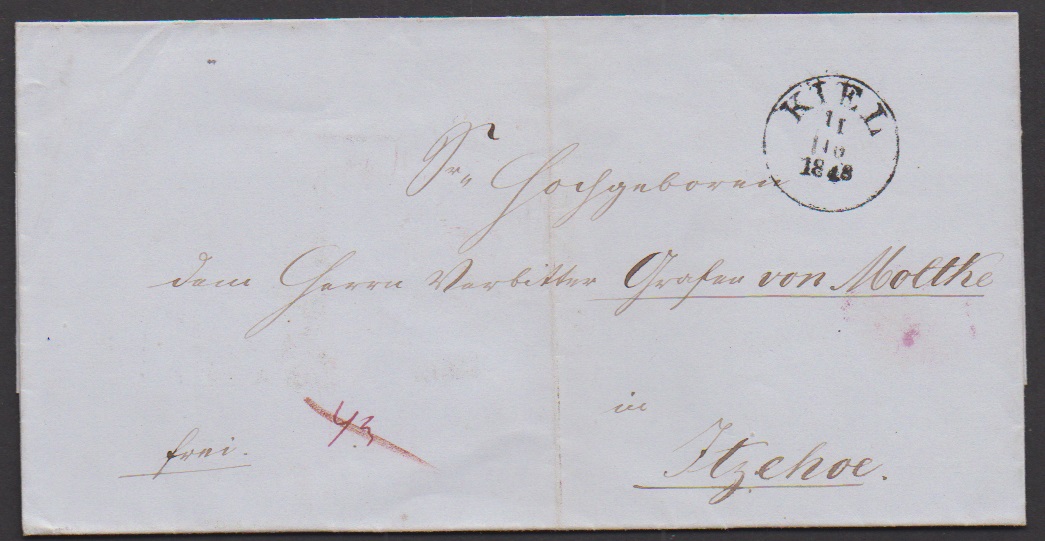 KIEL
11
1848
Sr. Hochgeboren
dem Herrn Verbitter Grafen von Moltke
in
Itzehoe.
frei.